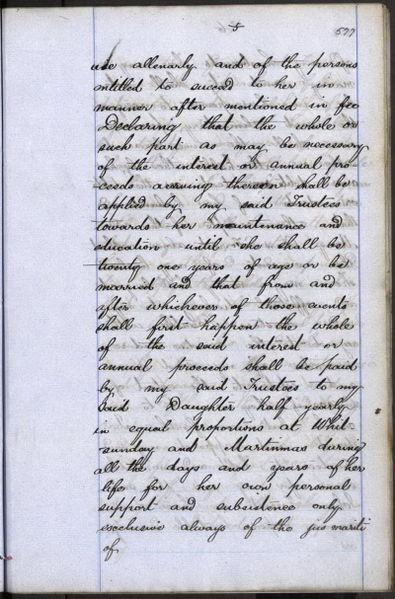 5
577
use allenarly and of the persons
entitled to succeed to her in
manner after mentioned in fee
Declaring that the whole or
such part as may be necessary
of the interest or annual pro-
ceeds accruing thereon shall be
applied by my said Trustees
towards her maintenance and
education until she shall be
twenty one years of age or be
married and that from and
after whichever of those events
shall first happen the whole
of the said interest or
annual proceeds shall be paid
by my said Trustees to my
said Daughter half yearly
in equal proportions at Whit-
sunday and Martinmas during
all the days and years of her
life for her own personal
support and subsistence only
exclusive always of the jus mariti
of